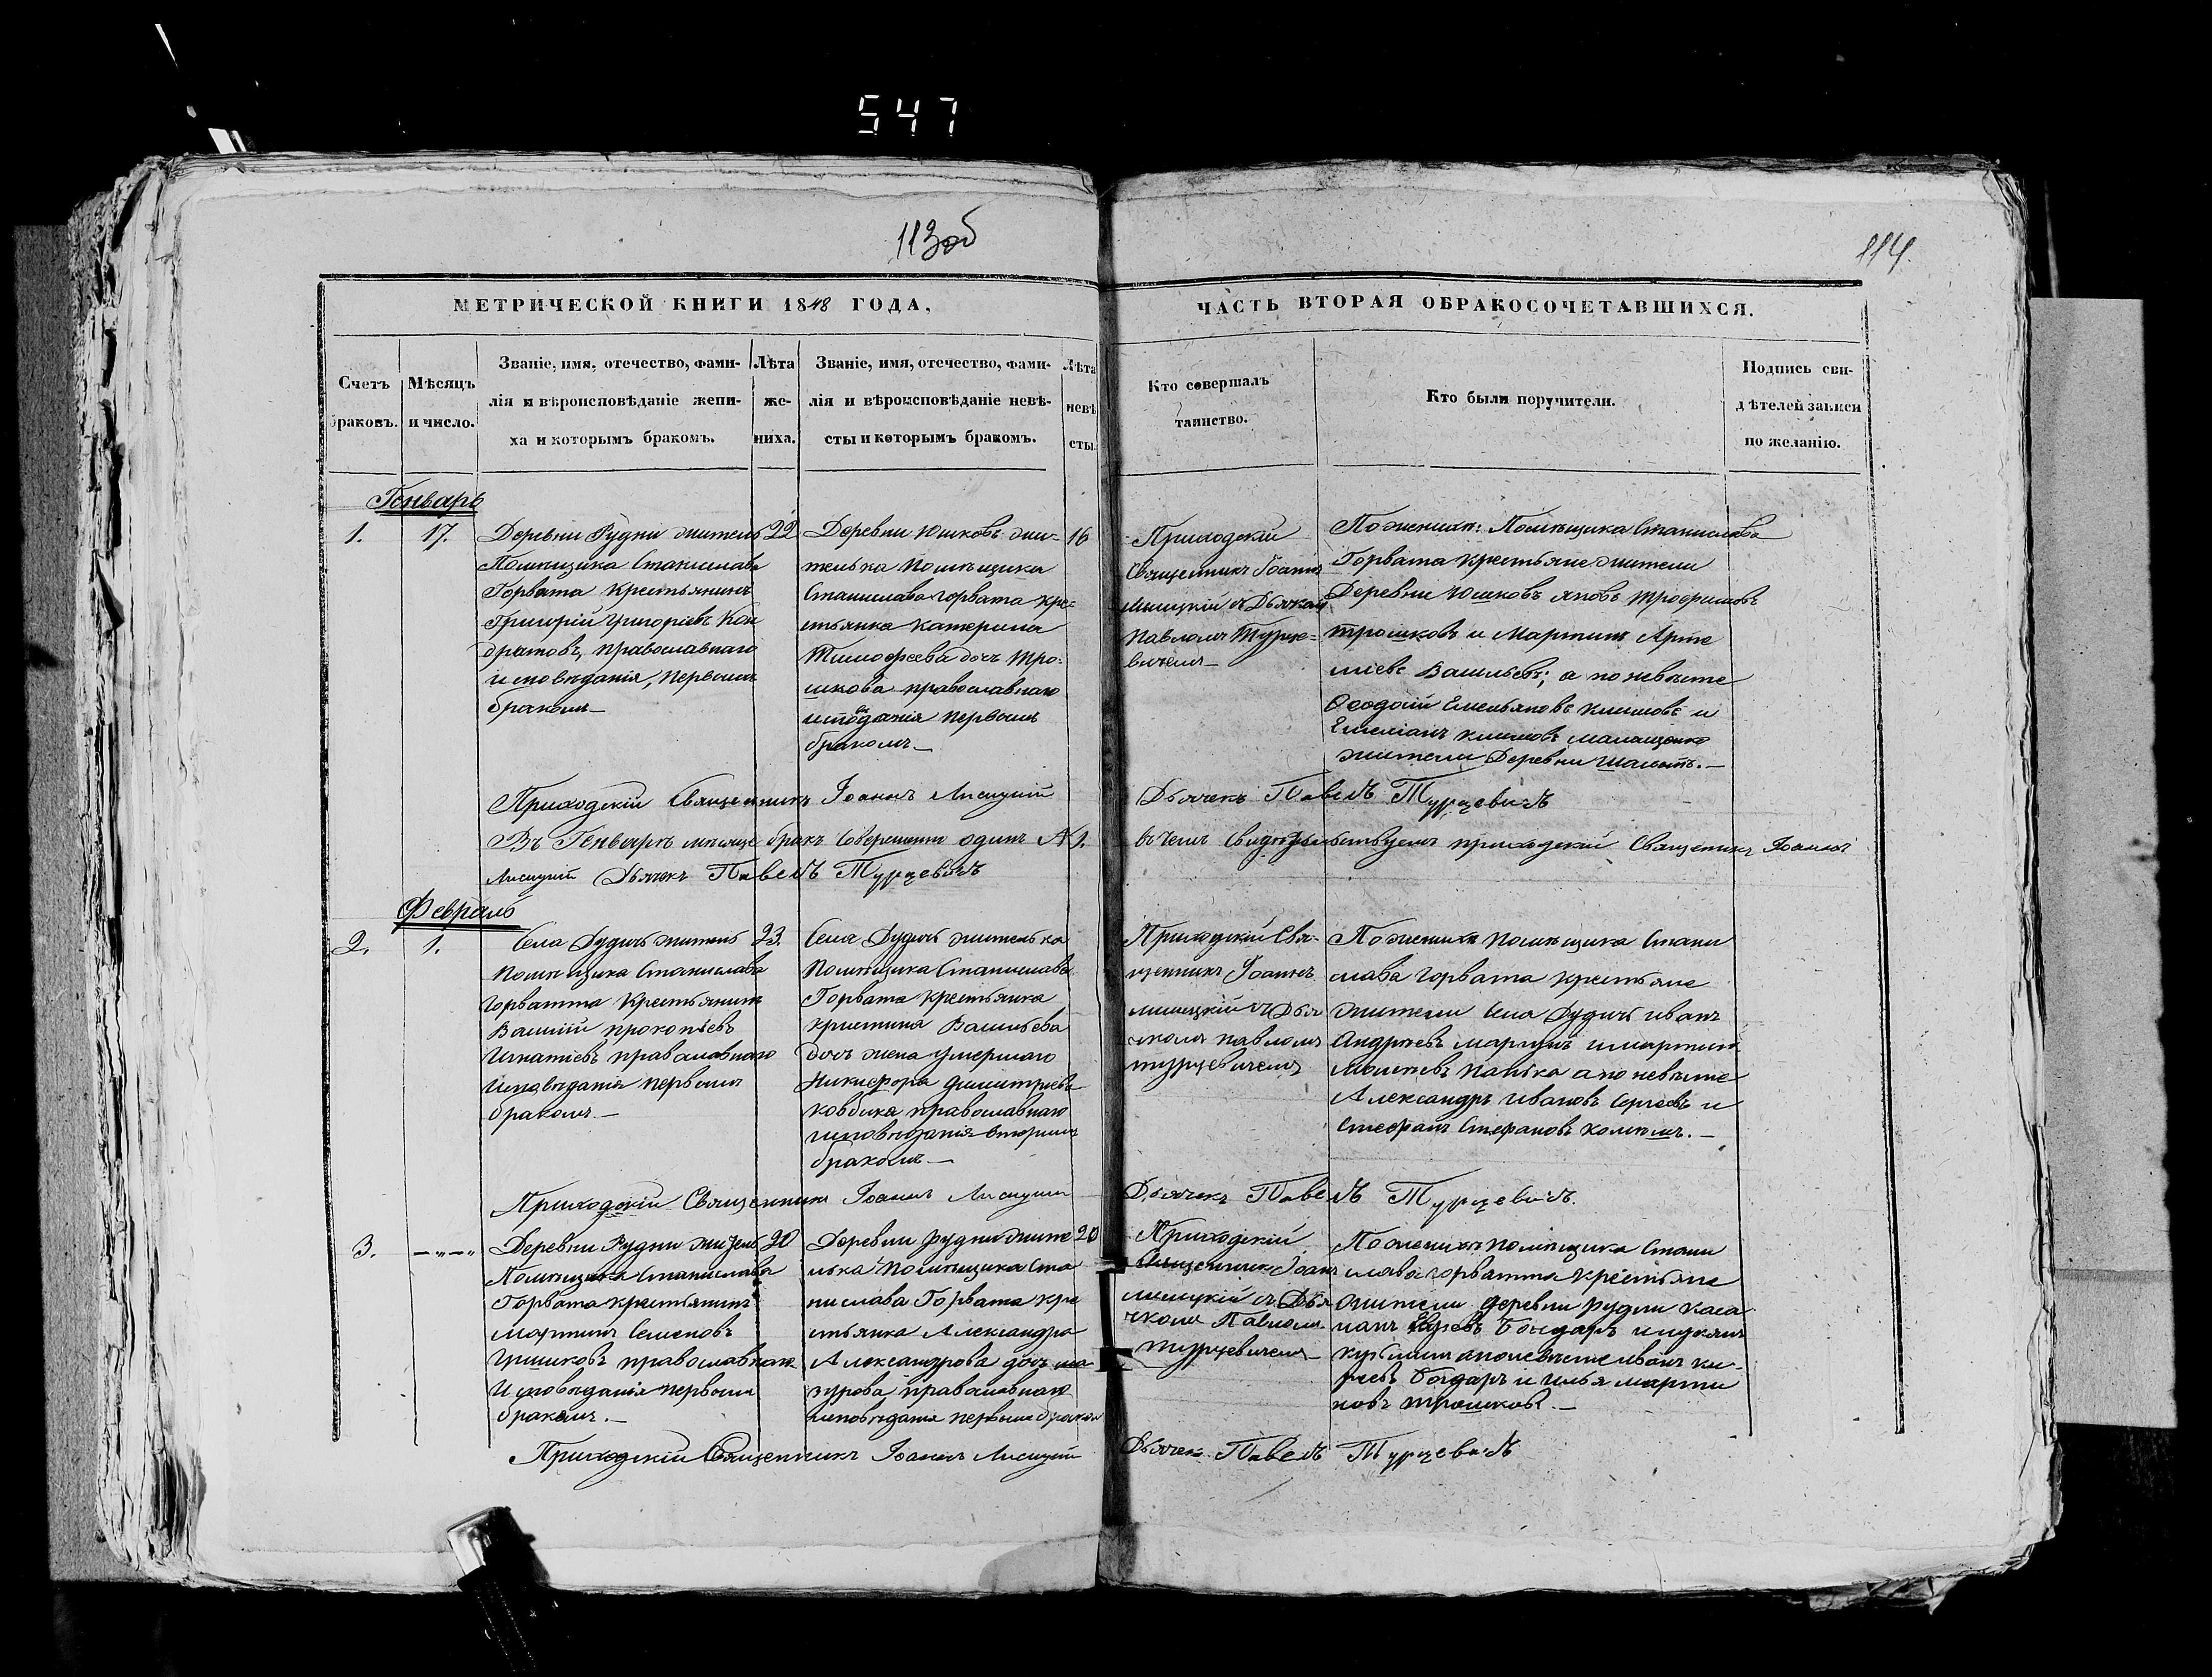 547
113 об
114.
МЕТРИЧЕСКОЙ КНИГИ 1848 ГОДА,
ЧАСТЬ ВТОРАЯ ОБРАКОСОЧЕТАВШИХСЯ.
Счетъ браковъ.
Мѣсяцъ и число.
Званіе, имя, отечество, фами-
лія и вѣроисповѣданіе жени-
ха и которымъ бракомъ.
Лѣта
же-
ниха.
Званіе, имя, отечество, фами-
лія и вѣроисповѣданіе невѣ-
сты и которымъ бракомъ.
Лѣта
невѣ
сты
Кто совершалъ
таинство.
Кто были поручители.
Подпись сви-
дѣтелей записи
по желанію.
Генварь
1.
17.
Деревни Рудни житель
Помѣщика Станислава
Горвата Крестьянинъ
Григорій Григоріевъ Кон
дратовъ, православнаго
исповѣданія, первымъ
бракомъ
22
Деревни Юшковъ жи-
телька помѣщика
Станислава Горвата кре-
стьянка Катерина
Тимофеева дочь Тро-
шкова православнаго
исповѣданія первымъ
бракомъ
16
Приходскій
Священникъ Іоаннъ
Лисицкій съ Дьячкомъ
Павломъ Турце-
вичемъ
По женихѣ: Помѣщика Станислава
Горвата крестьяне жители
Деревни Юшковъ Яковъ Трофимовъ
Трошковъ и Мартинъ Арте
міевъ Васильевъ; а по невѣсте
Феодосій Емельяновъ Климовъ и
Емеліанъ Климовъ
жители Деревни
Приходскій Священникъ Іоаннъ Лисицкій
Дьячекъ Павелъ Турцевичъ
Въ Генварѣ мѣсяце бракъ Совершенъ одинъ № 1.
въ чемъ Свидѣтельствуемъ приходскій Священникъ Іоаннъ
Лисицкій Дьячекъ Павелъ Турцевичъ
Февраль
2.
1.
Села Дудичъ житель
помѣщика Станислава
Горватта Крестьянинъ
Василій Прокопіевъ
Игнатіевъ православнаго
исповѣданія первымъ
бракомъ
23.
Села Дудичъ жителька
Помѣщика Станислава
Горвата крестьянка
Кристина Васильева
дочь жена умершаго
Никифора Димитріева
Ковбика православнаго
исповѣданія вторымъ
бракомъ
Приходскій Свя-
щенникъ Іоаннъ
Лисицкій съ Дья
чкомъ Павломъ
Турцевичемъ
По женихѣ помѣщика Стани
слава Горвата крестьяне
жители Села Дудичъ Иванъ
Андреевъ и Мартинъ
а по невѣсте
Александръ Ивановъ Сергеевъ и
Стефанъ Стефановъ
Приходскій Священникъ Іоаннъ Лисицкій
Дьячекъ Павелъ Турцевичъ.
3.
— „ — „
Деревни Рудни житель
Помѣщика Станислава
Горвата крестьянинъ
Мартинъ Семеновъ
Гришковъ православнаго
Исповѣданія первымъ
бракомъ.
20
Деревни Рудни жите
лька Помѣщика Ста
нислава Горвата кре
стьянка Александра
Александрова дочь Ма
зурова православнаго
исповѣданія первымъ бракомъ
20
Приходскій
Священникъ Іоаннъ
Лисицкій съ Дья
чкомъ Павломъ
Турцевичемъ
По женихѣ помѣщика Стани
слава Горватта крестьяне
жители деревни Рудни Каса
Бондаръ и Лукьянъ
а по невѣсте Иванъ Ки-
реевъ Бондаръ и Илья Марти
новъ Трошковъ.
Приходскій Священникъ Іоаннъ Лисицкій
Дьячекъ Павелъ Турцевичъ